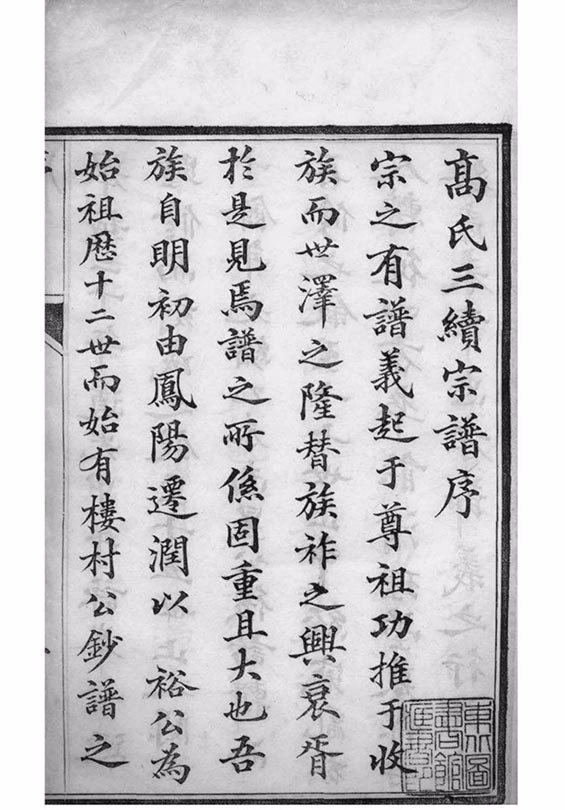 高氏三續宗譜序
宗之有譜義起于尊祖功推于收
族而世澤之隆替族祚之興衰胥
於是見焉譜之所係固重且大也吾
族自明初由鳳陽遷潤以 裕公為
始祖歷十二世而始有樓村公鈔譜之